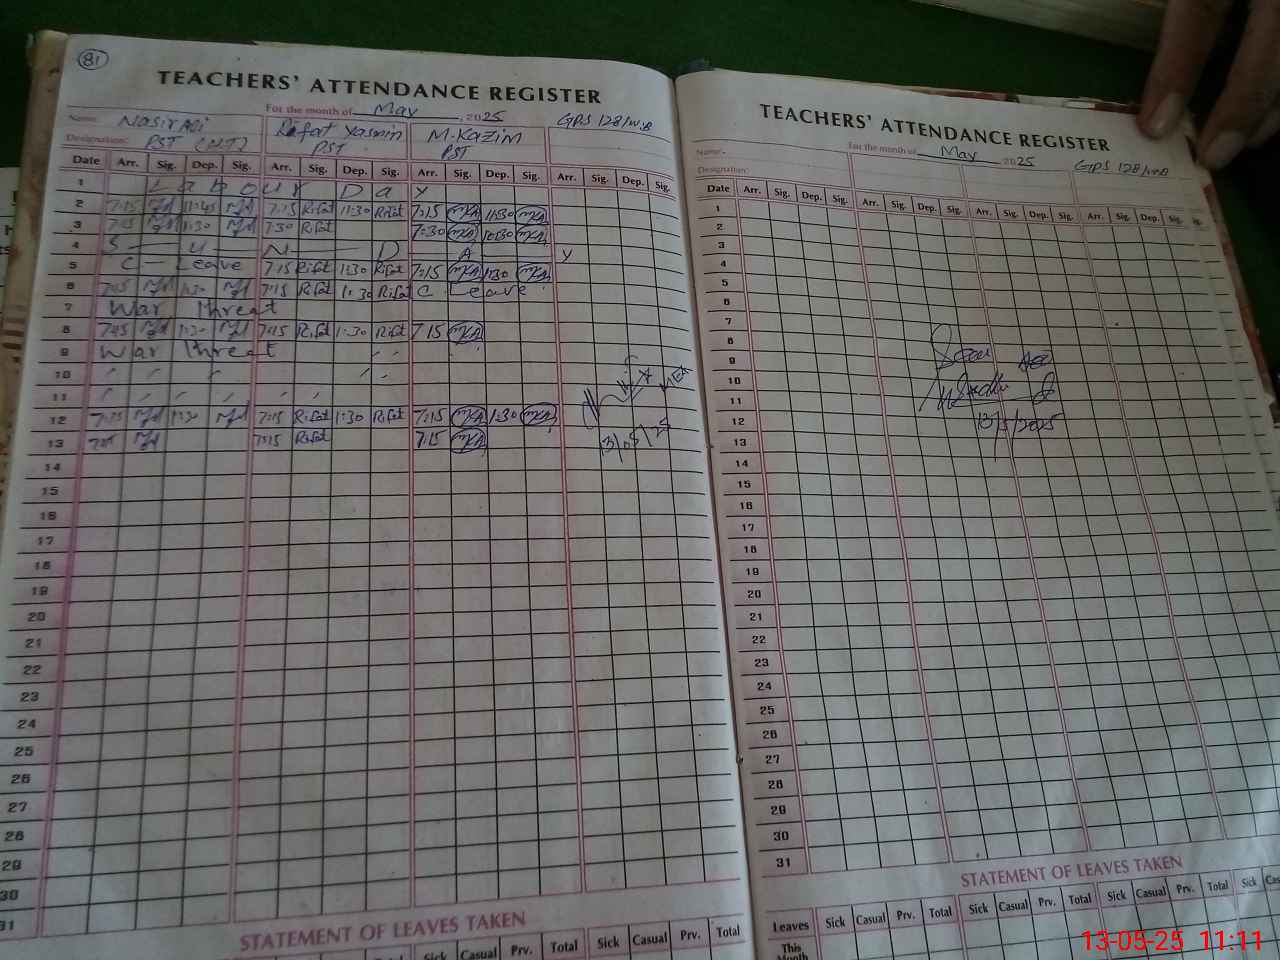 81
TEACHERS' ATTENDANCE REGISTER
For the month of May, 2025 GPS 128/W.B
Name: Nasir Ali Rifat Yasmin M. Kazim
Designation: PST (HT) PST PST
Date Arr. Sig. Dep. Sig. Arr. Sig. Dep. Sig. Arr. Sig. Dep. Sig. Arr. Sig. Dep. Sig.
1 Labour Day
2 7:15 11:45 7:15 Rifat 11:30 Rifat 7:15 MKA 11:30 MKA
3 7:15 11:30 7:30 Rifat 7:30 MKA 10:30 MKA
4 S U N D A Y
5 C - Leave 7:15 Rifat 1:30 Rifat 7:15 MKA 1:30 MKA
6 7:15 1:30 7:15 Rifat 1:30 Rifat C Leave
7 War threat
8 7:15 1:30 7:15 Rifat 1:30 Rifat 7:15 MKA
9 War threat
10
11
12 7:15 1:30 7:15 Rifat 1:30 Rifat 7:15 MKA 1:30 MKA
13 7:15 7:15 Rifat 7:15 MKA
MEA
13/05/25
14
15
16
17
18
19
20
21
22
23
24
25
26
27
28
29
30
31
STATEMENT OF LEAVES TAKEN
Sick Casual Prv. Total Sick Casual Prv. Total
TEACHERS' ATTENDANCE REGISTER
For the month of May 2025 GPS 128/WB
Name:
Designation:
Date Arr. Sig. Dep. Sig. Arr. Sig. Dep. Sig. Arr. Sig. Dep. Sig. Arr. Sig. Dep. Sig.
1
2
3
4
5
6
7
8
9
10
11
12
13
13/5/2025
14
15
16
17
18
19
20
21
22
23
24
25
26
27
28
29
30
31
STATEMENT OF LEAVES TAKEN
Leaves Sick Casual Prv. Total Sick Casual Prv. Total Sick Casual Prv. Total Sick
This Month
13-05-25 11:11